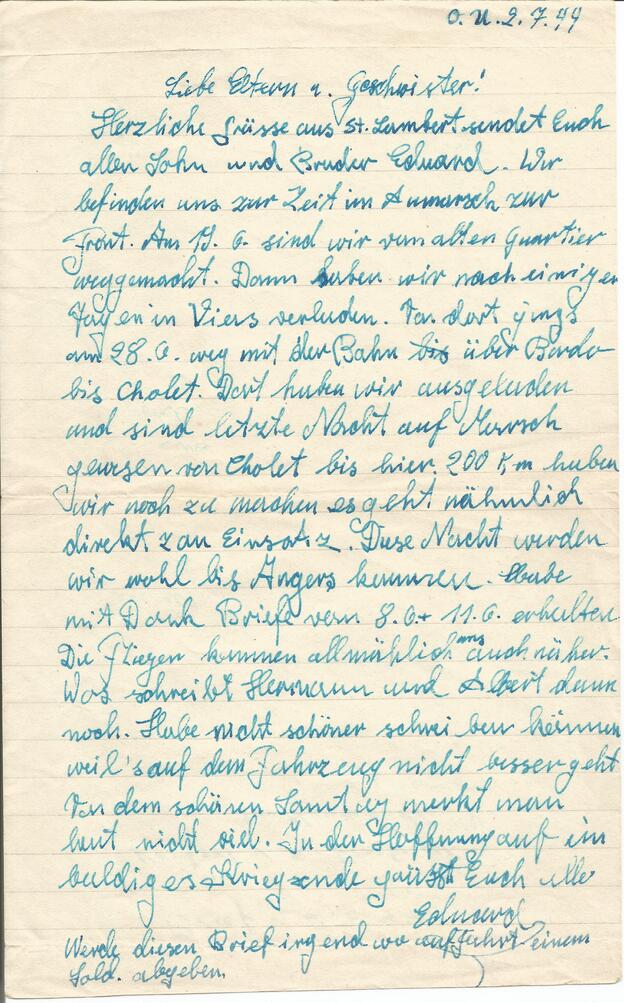 O.U. 2.7.44
Liebe Eltern u. Geschwister!
Herzliche Grüsse aus St. Lambert sendet Euch
allen Sohn und Bruder Eduard. Wir
befinden uns zur Zeit im Anmarsch zur
Front. Am 19. 6. sind wir vom alten Quartier
weggemacht. Dann haben wir nach einigen
Tagen in Viers verladen. Von dort gings
am 28. 6. weg mit der Bahn bis über Bordo
bis Cholet. Dort haben wir ausgeladen
und sind letzte Nacht auf Marsch
gewesen von Cholet bis hier. 200 Km haben
wir noch zu machen es geht nähmlich
direkt zum Einsatz. Diese Nacht werden
wir wohl bis Angers kommen. Habe
mit Dank Briefe vom 8. 6. + 11. 6. erhalten
Die Flieger kommen allmählich uns auch näher.
Was schreibt Hermann und Albert denn
noch. Habe nicht schöner schreiben können
weil's auf dem Fahrzeug nicht besser geht
Von dem schönen Sonntag merkt man
heut nicht viel. In der Hoffnung auf ein
baldiges Kriegsende grüsst Euch alle
Eduard
Werde diesen Brief irgendwo auf Fahrt einem
Sold. abgeben.